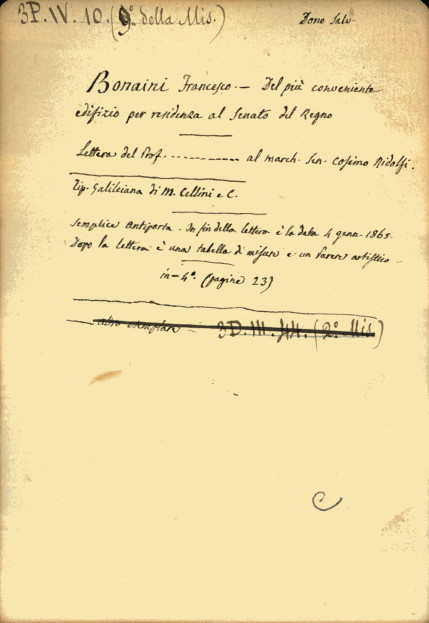 3P. IV. 10. (9º della Mis.) Dono Salv.
Bonaini Francesco. — Del più conveniente
edifizio per residenza al Senato del Regno
Lettera del Prof. ---------- al march. Sen. Cosimo Ridolfi.
Tip. Galileiana di M. Cellini e C.
Semplice Antiporta. In fin della lettera è la data 4 genn. 1865.
Dopo la lettera è una tabella di misure e un Parere artistico.
in-4º. (pagine 23)
altro esemplare 3D. III. 44. (2º Mis)
C